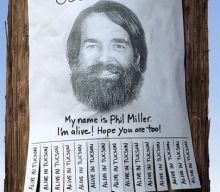 My name is Phil Miller.
I'm alive! Hope you are too!
ALIVE IN TUCSON
ALIVE IN TUCSON
ALIVE IN TUCSON
ALIVE IN TUCSON
ALIVE IN TUCSON
ALIVE IN TUCSON
ALIVE IN TUCSON
ALIVE IN TUCSON
ALIVE IN TUCSON
ALIVE IN TUCSON